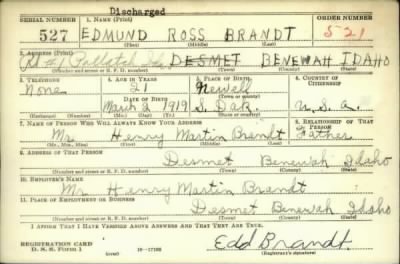 Discharged
SERIAL NUMBER 1. NAME (Print) ORDER NUMBER
527 EDMUND ROSS BRANDT 521
(First) (Middle) (Last)
2. ADDRESS (Print)
Rd #1 DESMET BENEWAH IDAHO
(Number and street or R. F. D. number) (Town) (County) (State)
3. TELEPHONE 4. AGE IN YEARS 5. PLACE OF BIRTH 6. COUNTRY OF CITIZENSHIP
None 21 Newell
DATE OF BIRTH (Town or county)
March 2 1919 S. Dak. U. S. A.
(Exchange) (Number) (Mo.) (Day) (Yr.) (State or country)
7. NAME OF PERSON WHO WILL ALWAYS KNOW YOUR ADDRESS 8. RELATIONSHIP OF THAT PERSON
Mr. Henry Martin Brandt Father
(Mr., Mrs., Miss) (First) (Middle) (Last)
9. ADDRESS OF THAT PERSON
Desmet Benewah Idaho
(Number and street or R. F. D. number) (Town) (County) (State)
10. EMPLOYER'S NAME
Mr. Henry Martin Brandt
11. PLACE OF EMPLOYMENT OR BUSINESS
Desmet Benewah Idaho
(Number and street or R. F. D. number) (Town) (County) (State)
I AFFIRM THAT I HAVE VERIFIED ABOVE ANSWERS AND THAT THEY ARE TRUE.
REGISTRATION CARD
D. S. S. Form 1 16-17105 Edd Brandt
(Registrant's signature)